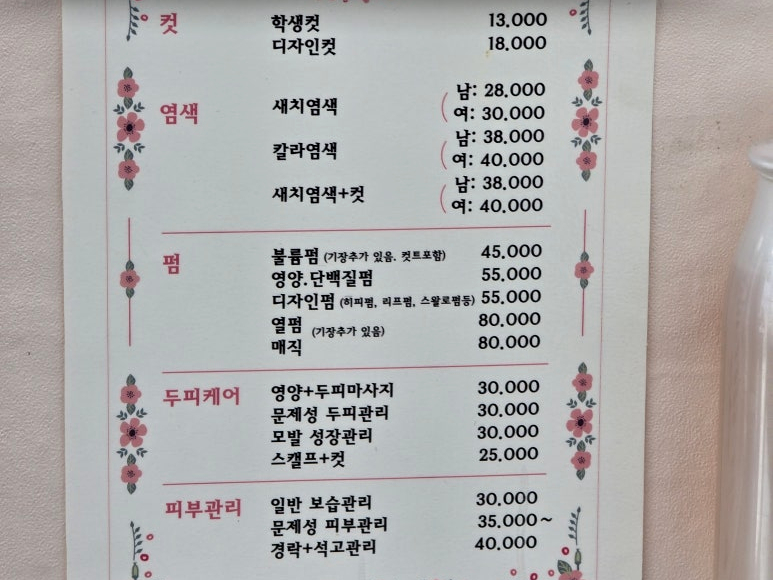 컷 학생컷 13.000
디자인컷 18.000
염색 새치염색 남: 28.000
여: 30.000
칼라염색 남: 38.000
여: 40.000
새치염색+컷 남: 38.000
여: 40.000
펌 볼륨펌 (기장추가 있음. 컷트포함) 45.000
영양.단백질펌 55.000
디자인펌 (히피펌, 리프펌, 스왈로펌등) 55.000
열펌 (기장추가 있음) 80.000
매직 80.000
두피케어 영양+두피마사지 30.000
문제성 두피관리 30.000
모발 성장관리 30.000
스캘프+컷 25.000
피부관리 일반 보습관리 30.000
문제성 피부관리 35.000~
경락+석고관리 40.000